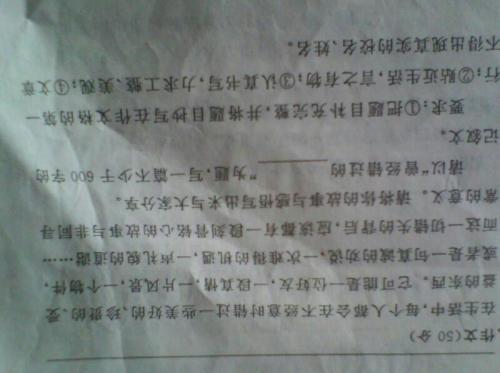 、作文(50分)
在生活中,每个人都会在不经意时错过一些美好的、珍贵的、受
益的东西。它可能是一位好友,一段真情,一片风景,一个物件,
或者是一句真诚的劝说,一次难得的机遇,一声礼貌的道谢……
而这一切错失的背后,应该都有一段刻骨铭心的故事与非同寻
常的意义。请将你的故事与感悟写出来与大家分享。
请以“曾经错过的________”为题,写一篇不少于600字的
记叙文。
要求:①把题目补充完整,并将题目抄写在作文格的第一
行;②贴近生活,言之有物;③认真书写,力求工整、美观;④文章
不得出现真实的校名、姓名。